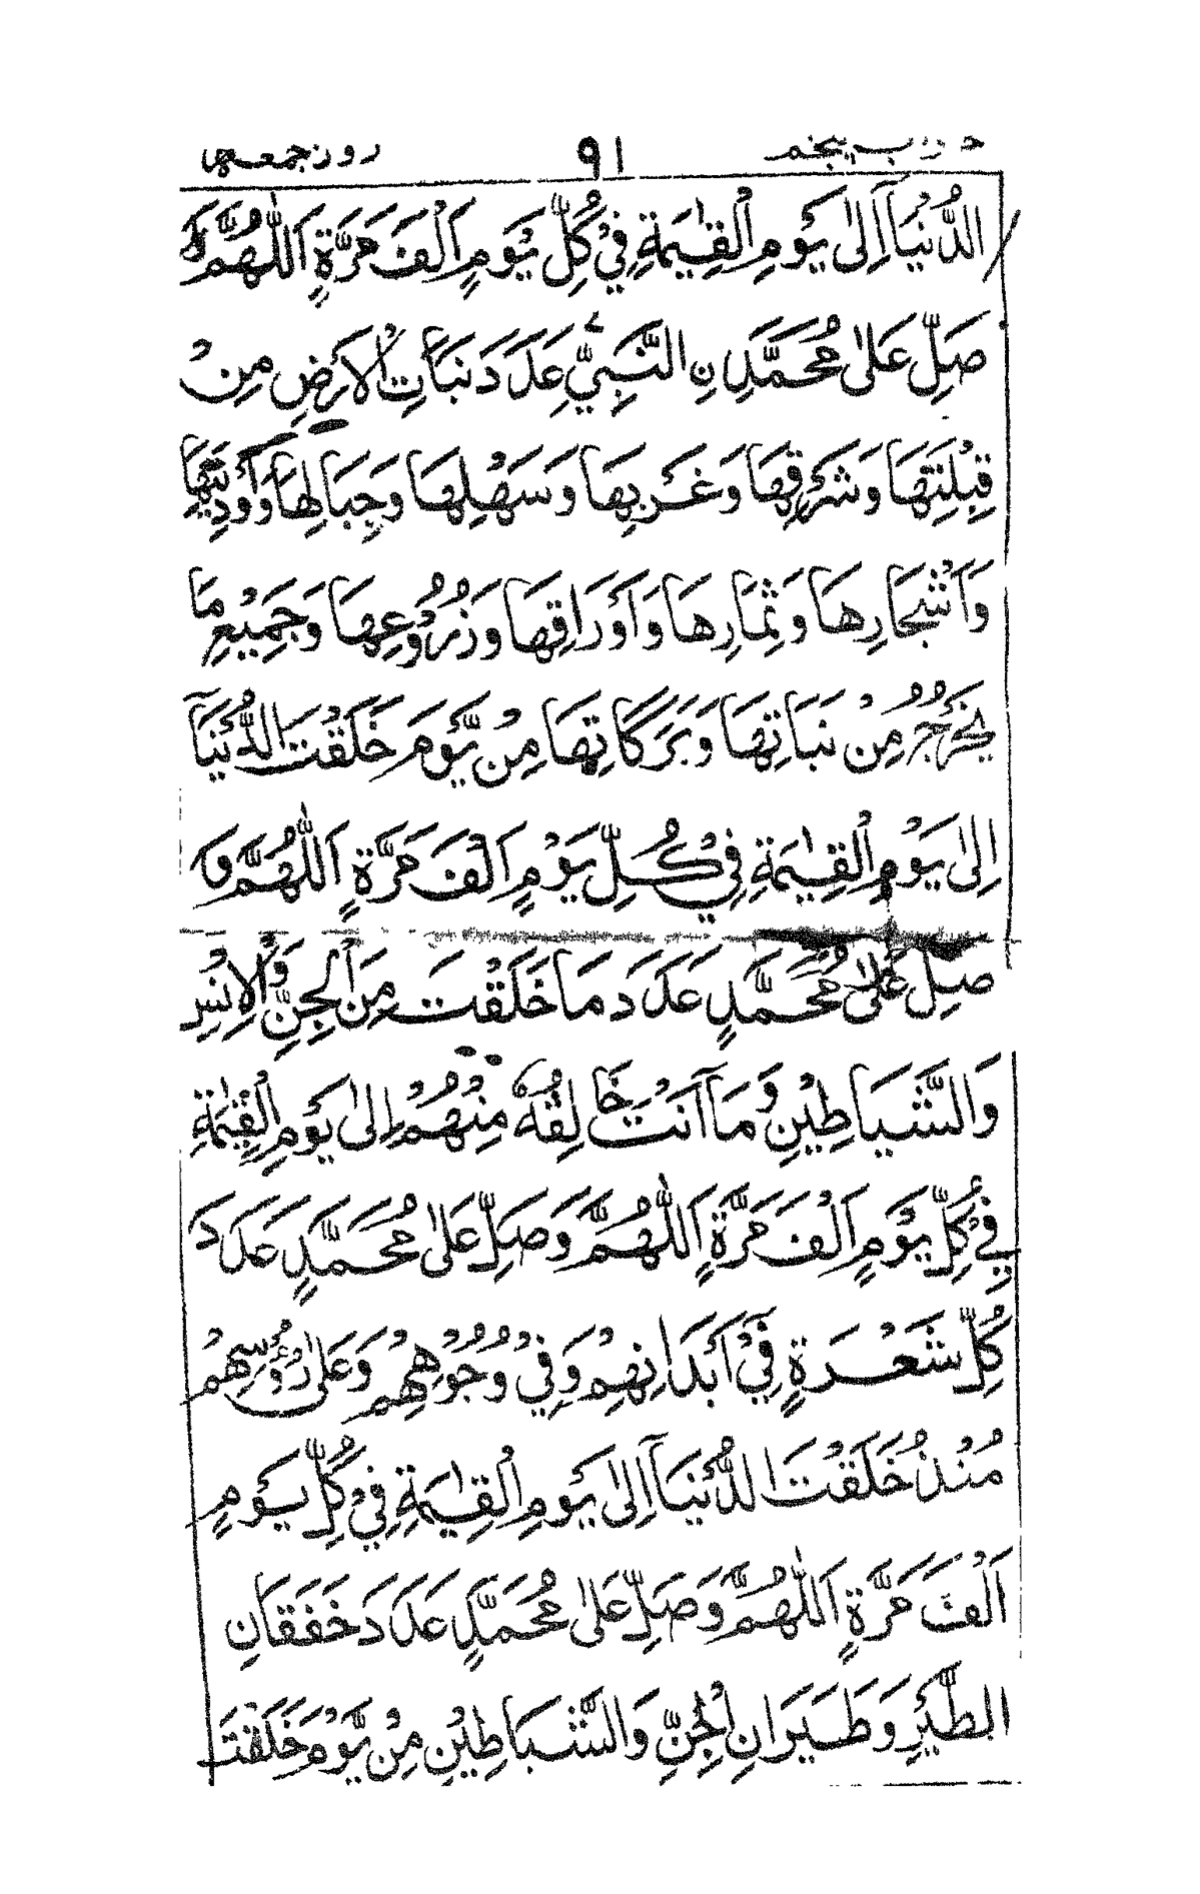 حزب پنجم ۹۱ روز جمعہ
الدُّنْيَآ اِلٰى يَوْمِ الْقِيٰمَةِ فِيْ كُلِّ يَوْمٍ اَلْفَ مَرَّةٍ اَللّٰهُمَّ وَ
صَلِّ عَلٰى مُحَمَّدِ نِ النَّبِيِّ عَدَدَ نَبَاتِ الْاَرْضِ مِنْ
قِبْلَتِهَا وَشَرْقِهَا وَغَرْبِهَا وَسَهْلِهَا وَجِبَالِهَا وَاَوْدِيَتِهَا
وَاَشْجَارِهَا وَثِمَارِهَا وَاَوْرَاقِهَا وَزُرُوْعِهَا وَجَمِيْعِ مَا
يَخْرُجُ مِنْ نَبَاتِهَا وَبَرَكَاتِهَا مِنْ يَّوْمَ خَلَقْتَ الدُّنْيَآ
اِلٰى يَوْمِ الْقِيٰمَةِ فِيْ كُلِّ يَوْمٍ اَلْفَ مَرَّةٍ اَللّٰهُمَّ وَ
صَلِّ عَلٰى مُحَمَّدٍ عَدَدَ مَا خَلَقْتَ مِنَ الْجِنِّ وَالْاِنْسِ
وَالشَّيَاطِيْنِ وَمَآ اَنْتَ خَالِقُهٗ مِنْهُمْ اِلٰى يَوْمِ الْقِيٰمَةِ
فِيْ كُلِّ يَوْمٍ اَلْفَ مَرَّةٍ اَللّٰهُمَّ وَصَلِّ عَلٰى مُحَمَّدٍ عَدَدَ
كُلِّ شَعْرَةٍ فِيْٓ اَبْدَانِهِمْ وَفِيْ وُجُوْهِهِمْ وَعَلٰى رُءُوْسِهِمْ
مُنْذُ خَلَقْتَ الدُّنْيَآ اِلٰى يَوْمِ الْقِيٰمَةِ فِيْ كُلِّ يَوْمٍ
اَلْفَ مَرَّةٍ اَللّٰهُمَّ وَصَلِّ عَلٰى مُحَمَّدٍ عَدَدَ خَفَقَانِ
الطَّيْرِ وَطَيَرَانِ الْجِنِّ وَالشَّيَاطِيْنِ مِنْ يَّوْمَ خَلَقْتَ